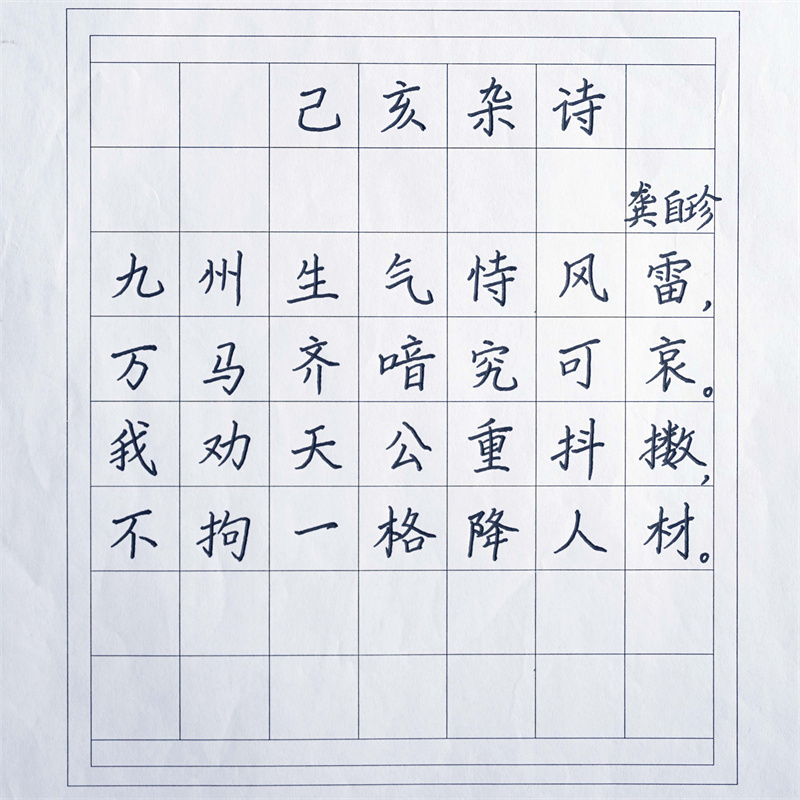 己亥杂诗
龚自珍
九州生气恃风雷,
万马齐喑究可哀。
我劝天公重抖擞,
不拘一格降人材。